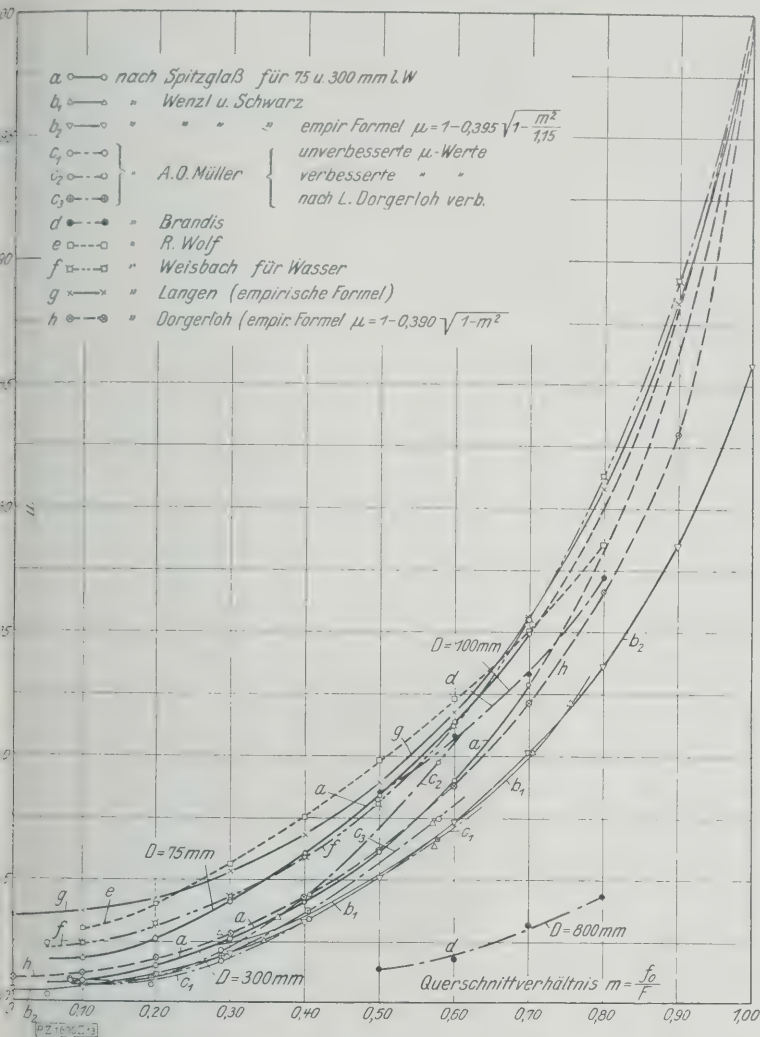 a nach Spitzglaß für 75 u. 300 mm l. W
b₁ " Wenzl u. Schwarz
b₂ " " " " empir Formel μ = 1-0,395 √1- m²/1,15
c₁ unverbesserte μ-Werte
c₂ " A.O. Müller verbesserte " "
c₃ nach L. Dorgerloh verb.
d " Brandis
e " R. Wolf
f " Weisbach für Wasser
g " Langen (empirische Formel)
h " Dorgerloh (empir. Formel μ = 1-0,390 √1-m²
μ
D=100mm
d
b₂
h
g
a
a
c₂
b₁
c₃
c₁
D=75mm
f
g
e
a
b₁
f
a
d
D=800mm
h
c₁
D=300mm
Querschnittverhältnis m = f₀/F
b₂ 0,10 0,20 0,30 0,40 0,50 0,60 0,70 0,80 0,90 1,00